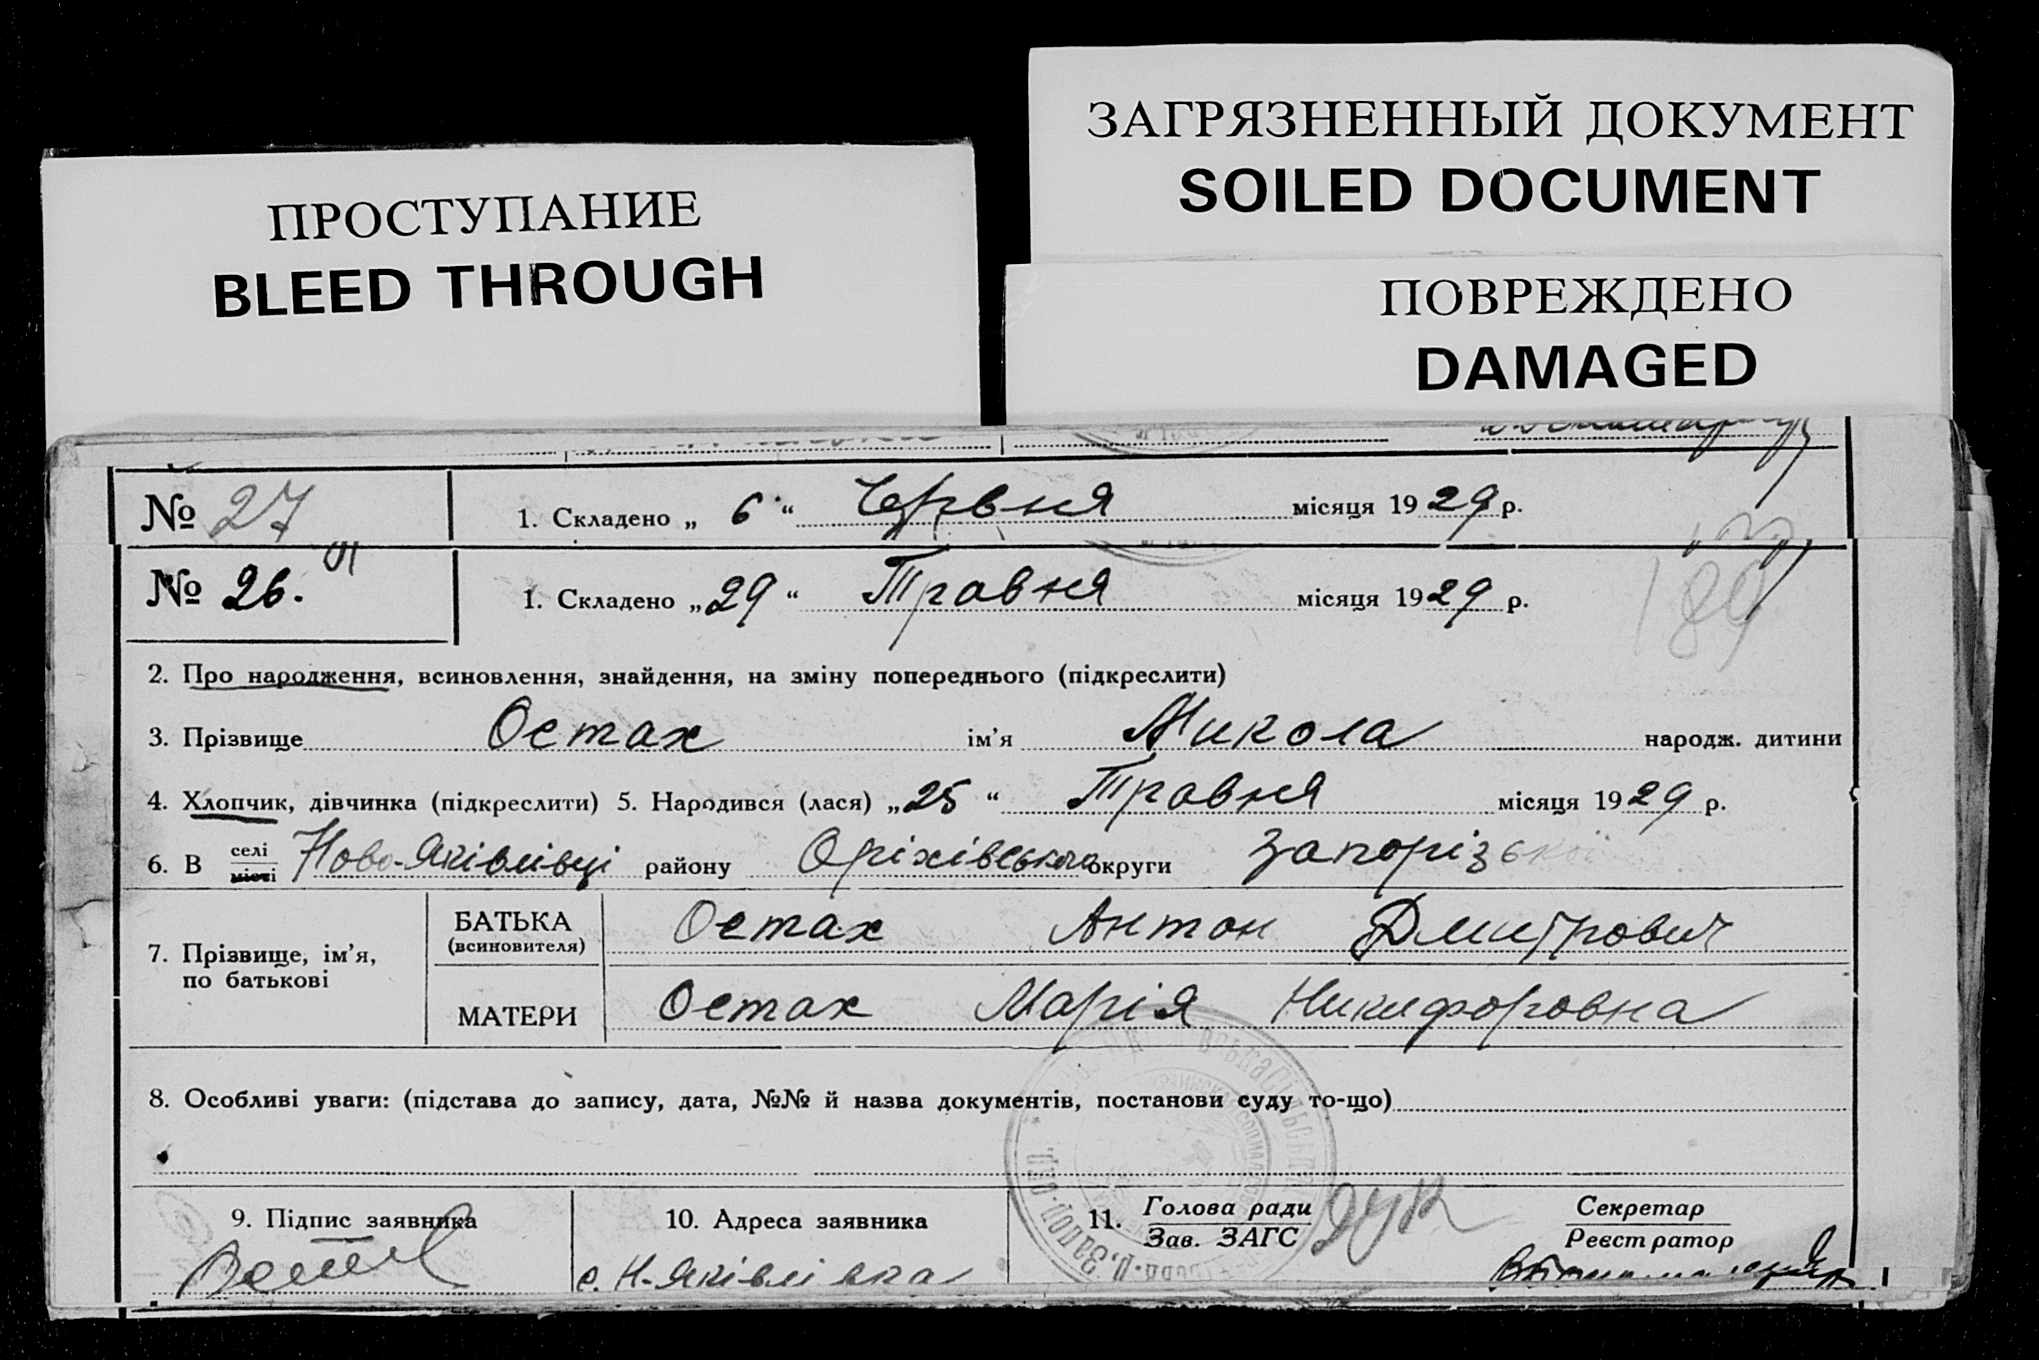 ЗАГРЯЗНЕННЫЙ ДОКУМЕНТ
SOILED DOCUMENT
ПРОСТУПАНИЕ
BLEED THROUGH
ПОВРЕЖДЕНО
DAMAGED
№ 27 1. Складено „ 6 “ Червня місяця 1929 р.
№ 26. 1. Складено „29“ Травня місяця 1929 р.
189
2. Про народження, всиновлення, знайдення, на зміну попереднього (підкреслити)
3. Прізвище Остах ім'я Микола народж. дитини
4. Хлопчик, дівчинка (підкреслити) 5. Народився (лася) „25“ Травня місяця 1929 р.
6. В селі місті Ново-Яківлівці району Оріхівського округи Запорізької
7. Прізвище, ім'я, по батькові
БАТЬКА (всиновителя) Остах Антон Дмитрович
МАТЕРИ Остах Марія Никифоровна
8. Особливі уваги: (підстава до запису, дата, №№ й назва документів, постанови суду то-що)
9. Підпис заявника 10. Адреса заявника 11. Голова ради Зав. ЗАГС Секретар Реєстратор
с. Н-Яківлівка